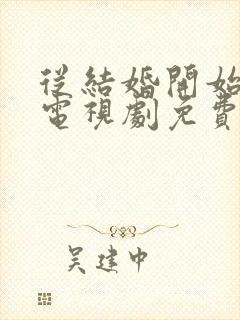 從結婚開始
電視劇免費
吳建中